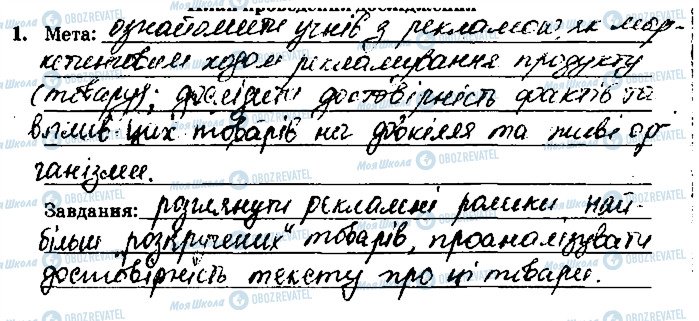 проведення дослідження
1. Мета: ознайомити учнів з рекламою як мар-
кетинговим ходом рекламування продукту
(товару); дослідити достовірність фактів та
вплив цих товарів на довкілля та живі ор-
ганізми.
Завдання: розглянути рекламні ролики най-
більш „розкручених" товарів, проаналізувати
достовірність тексту про ці товари.